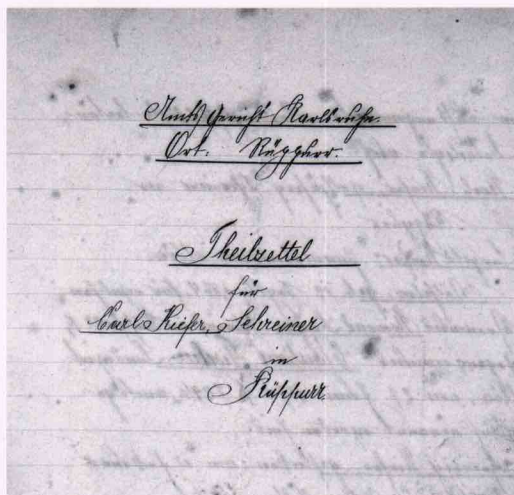 Amtsgericht Karlsruhe.
Ort: Rüppurr.
Theilzettel
für
Carl Kiefer, Schreiner
in
Rüppurr